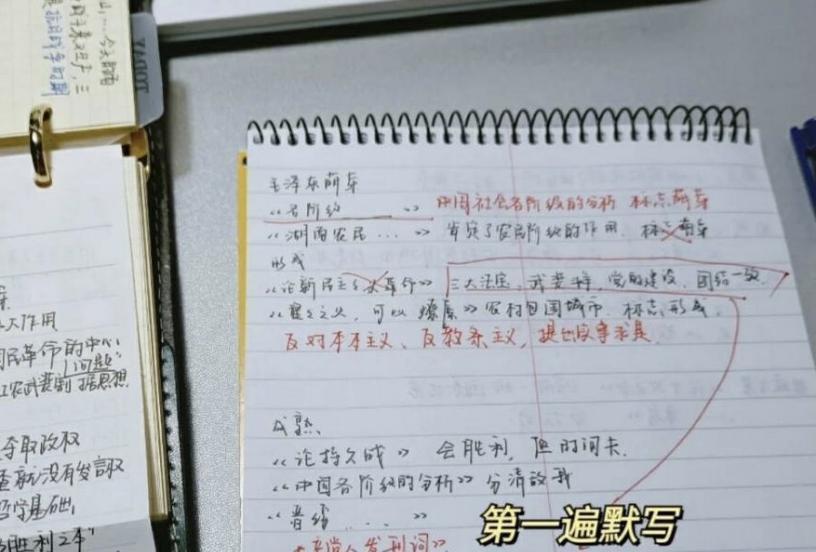 毛泽东萌芽
《各阶级____》 中国社会各阶级的分析 标志萌芽
《湖南农民...》 肯定了农民阶级的作用. 标志萌芽
形成
《论新民主主义革命》 三大法宝, 武装斗争, 党的建设, 团结一致.
《星星之火, 可以燎原》农村包围城市. 标志形成.
反对本本主义、反教条主义, 提出实事求是.
成熟.
《论持久战》 会胜利, 但时间长.
《中国各阶级的分析》分清敌我
第一遍默写
TODAY
大作用
民革命的中心
问题
工农武装割据思想
夺取政权
查就没有发言权
哲学基础
胜利之本"
抗日战争时期
发刊词》